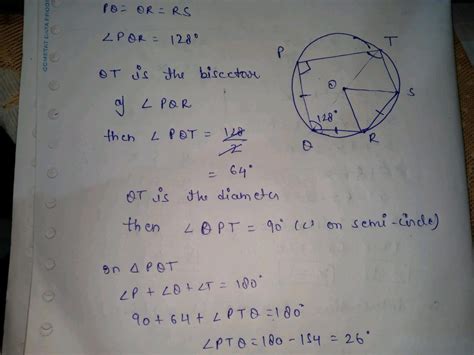 PQ = QR = RS
∠PQR = 128°
QT is the bisector
of ∠PQR
then ∠PQT = 128/2
= 64°
QT is the diameter
then ∠QPT = 90° (∠ on semi-circle)
on △PQT
∠P + ∠Q + ∠T = 180°
90 + 64 + ∠PTQ = 180°
∠PTQ = 180 - 154 = 26°
P
T
O
S
128°
Q
R